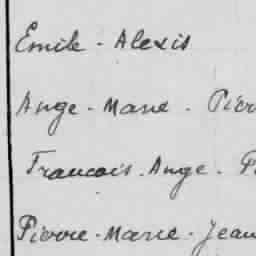 Emile - Alexis
Ange - Marie - Pier
Francois - Ange - P
Pierre - Marie - Jean